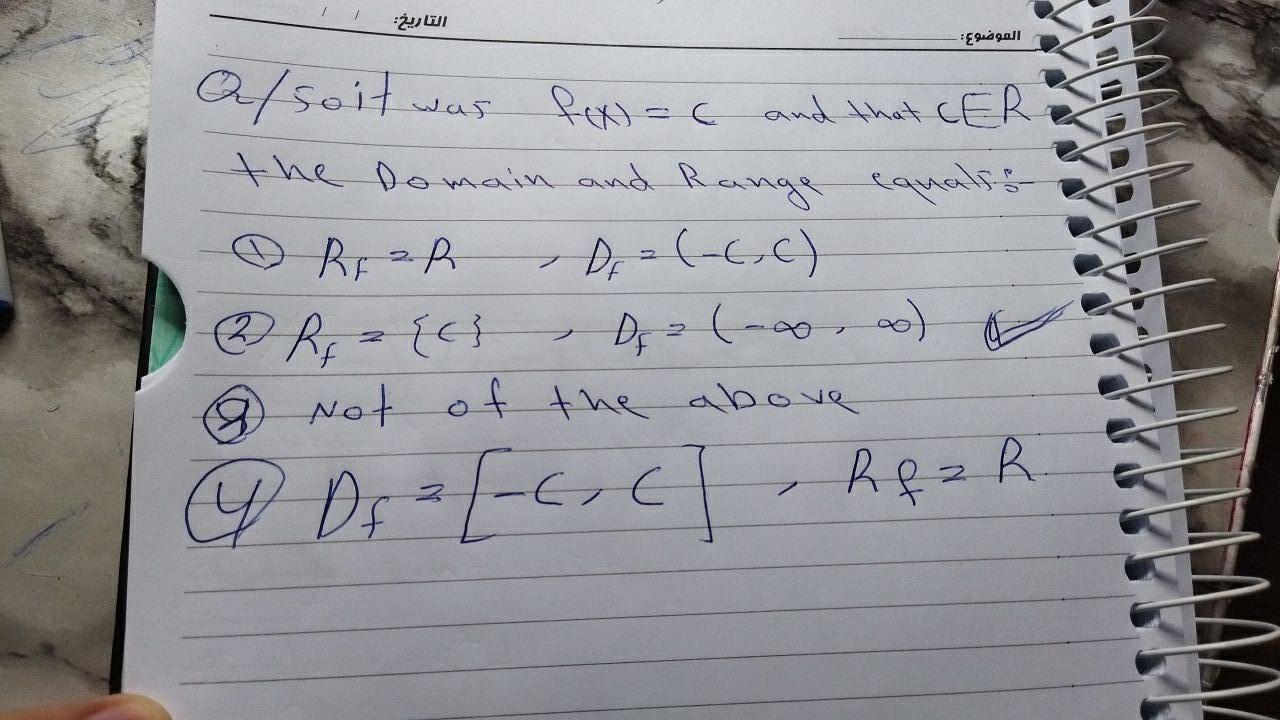 التاريخ: / /
الموضوع:
Q/ soit was f(x) = C and that C∈R
the Domain and Range equals:-
① Rf = R , Df = (-C, C)
② Rf = {C} , Df = (-∞, ∞) ✓
③ Not of the above
④ Df = [-C, C] , Rf = R